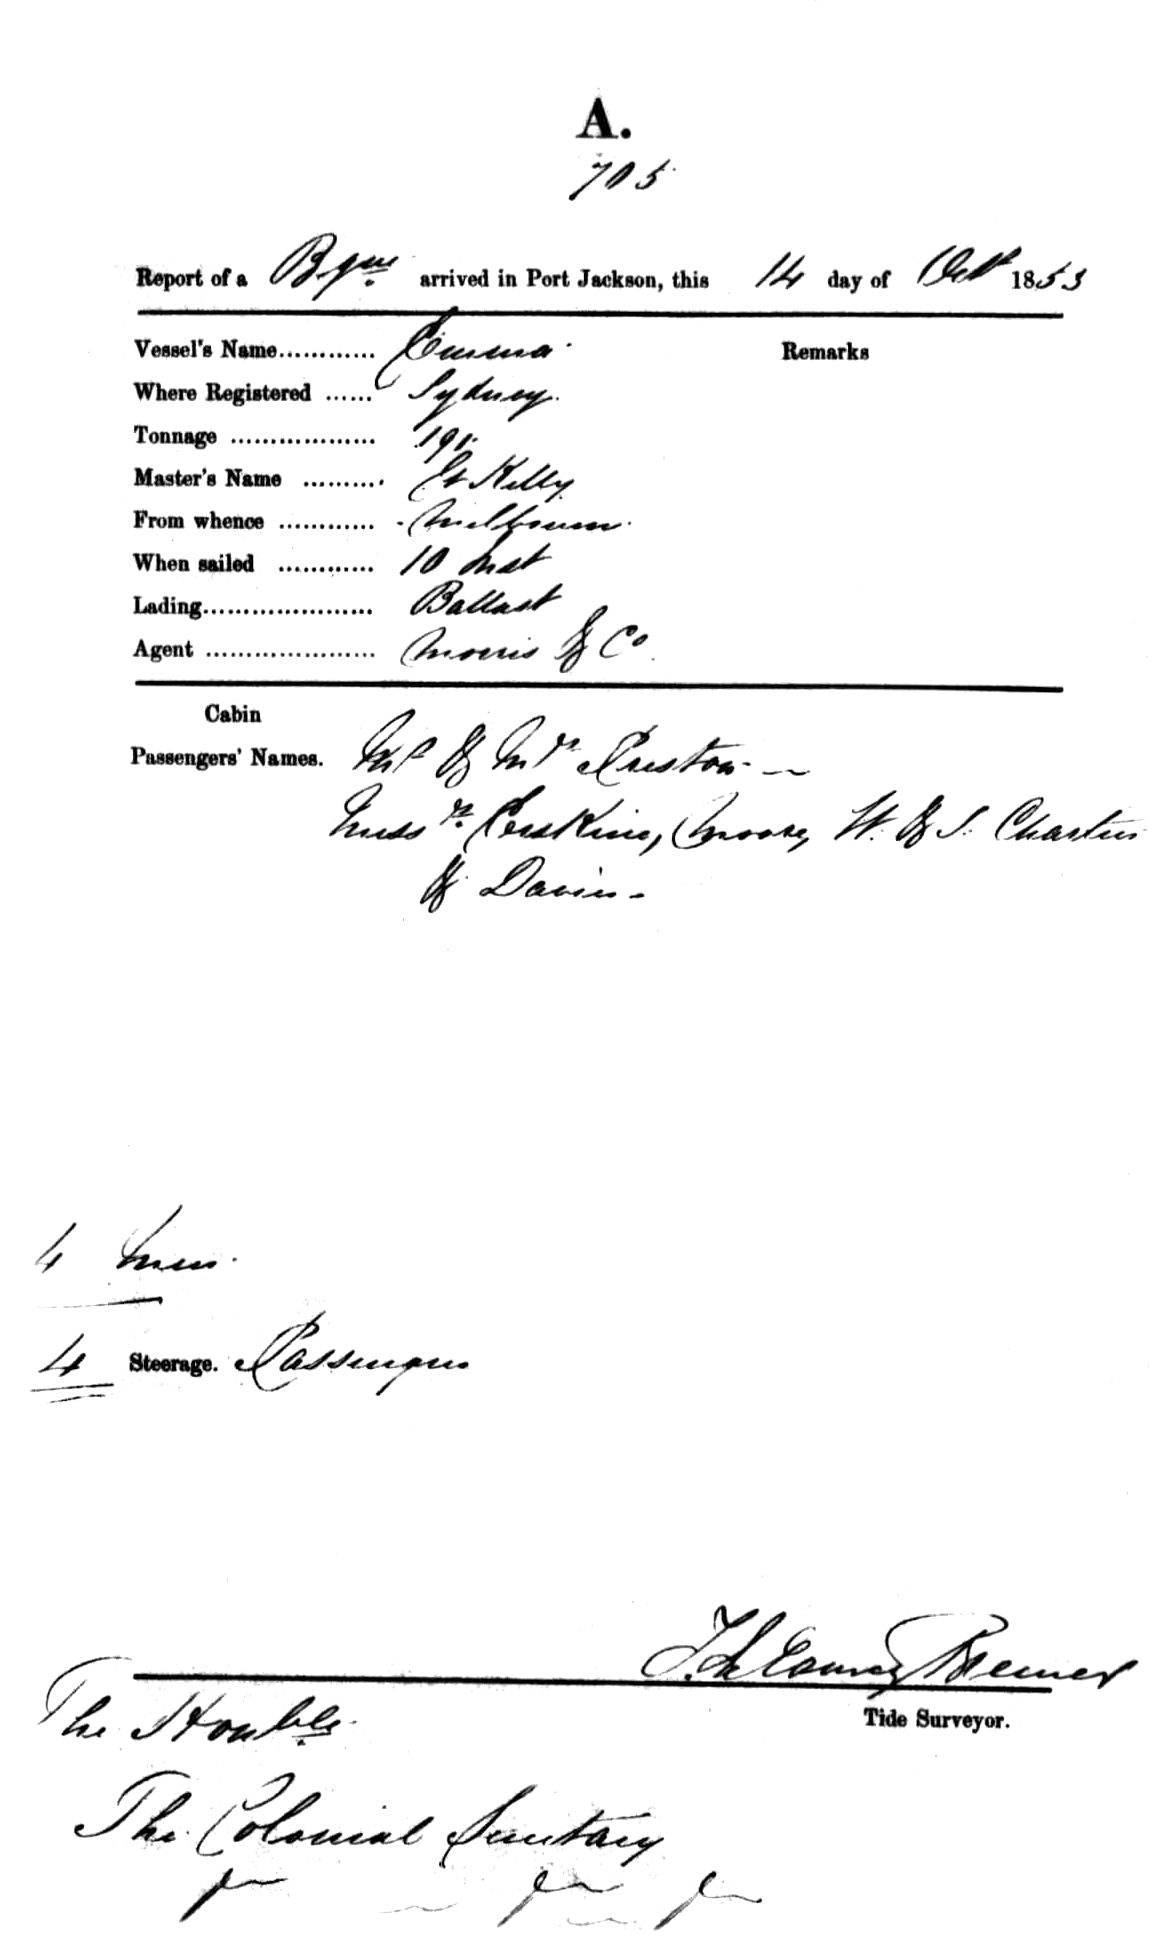 A.
705
Report of a Bqne arrived in Port Jackson, this 14 day of Octr 1853
Vessel's Name............ Emma Remarks
Where Registered ...... Sydney
Tonnage .................. 191
Master's Name .......... Kelly
From whence ............ Melbourne
When sailed ............ 10 Inst
Lading..................... Ballast
Agent ..................... Morris & Co
Cabin
Passengers' Names. Mr & Mrs Preston
Messrs Erskine, Moore, W. & J. Charters
& Davies
4 Men
4 Steerage. Passengers
Bremer
Tide Surveyor.
The Honble
The Colonial Secretary